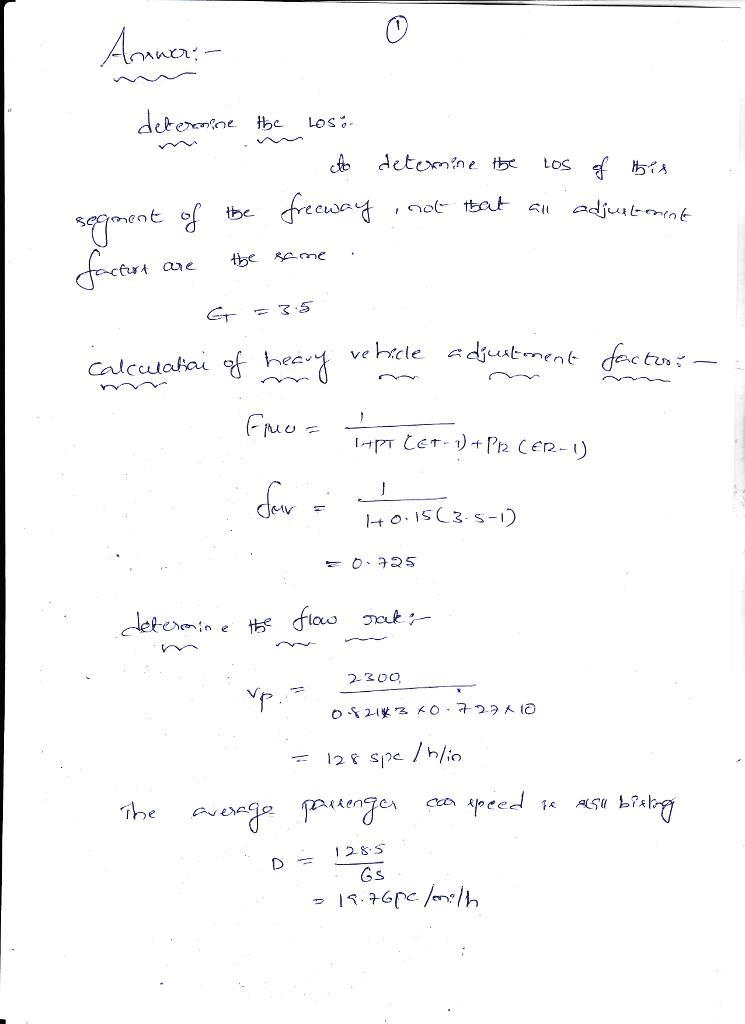 ①
Answer:-
determine the LOS:-
to determine the LOS of this
segment of the freeway, not that all adjustment
factors are the same.
ET = 3.5
calculation of heavy vehicle adjustment factor:-
FMU = 1 / 1+PT (ET-1)+PR (ER-1)
fHV = 1 / 1+0.15(3.5-1)
= 0.725
determine the flow rate:-
vp = 2300 / 0.821×3×0.727×10
= 128 spc/h/in
The average passenger car speed is still
D = 128.5 / 65
= 19.76pc/mi/h